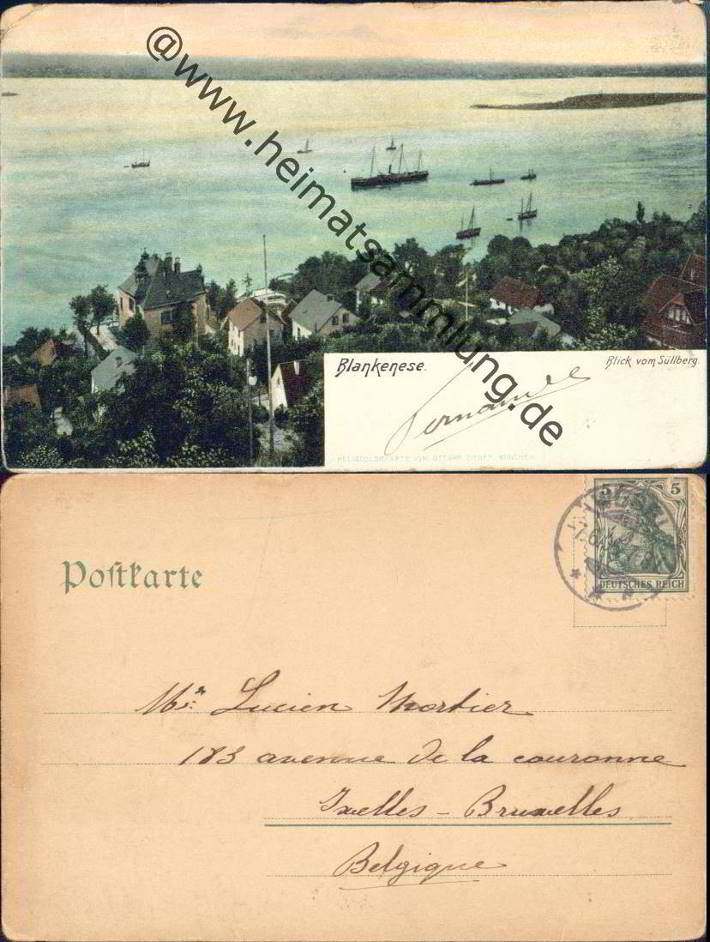 @www.heimatsammlung.de
Blankenese.
Blick vom Süllberg.
Fernande
HELIOCOLORKARTE VON OTTMAR ZIEHER, MÜNCHEN
5
DEUTSCHES REICH
Postkarte
Mr. Lucien Mortier
183 avenue de la couronne
Ixelles - Bruxelles
Belgique